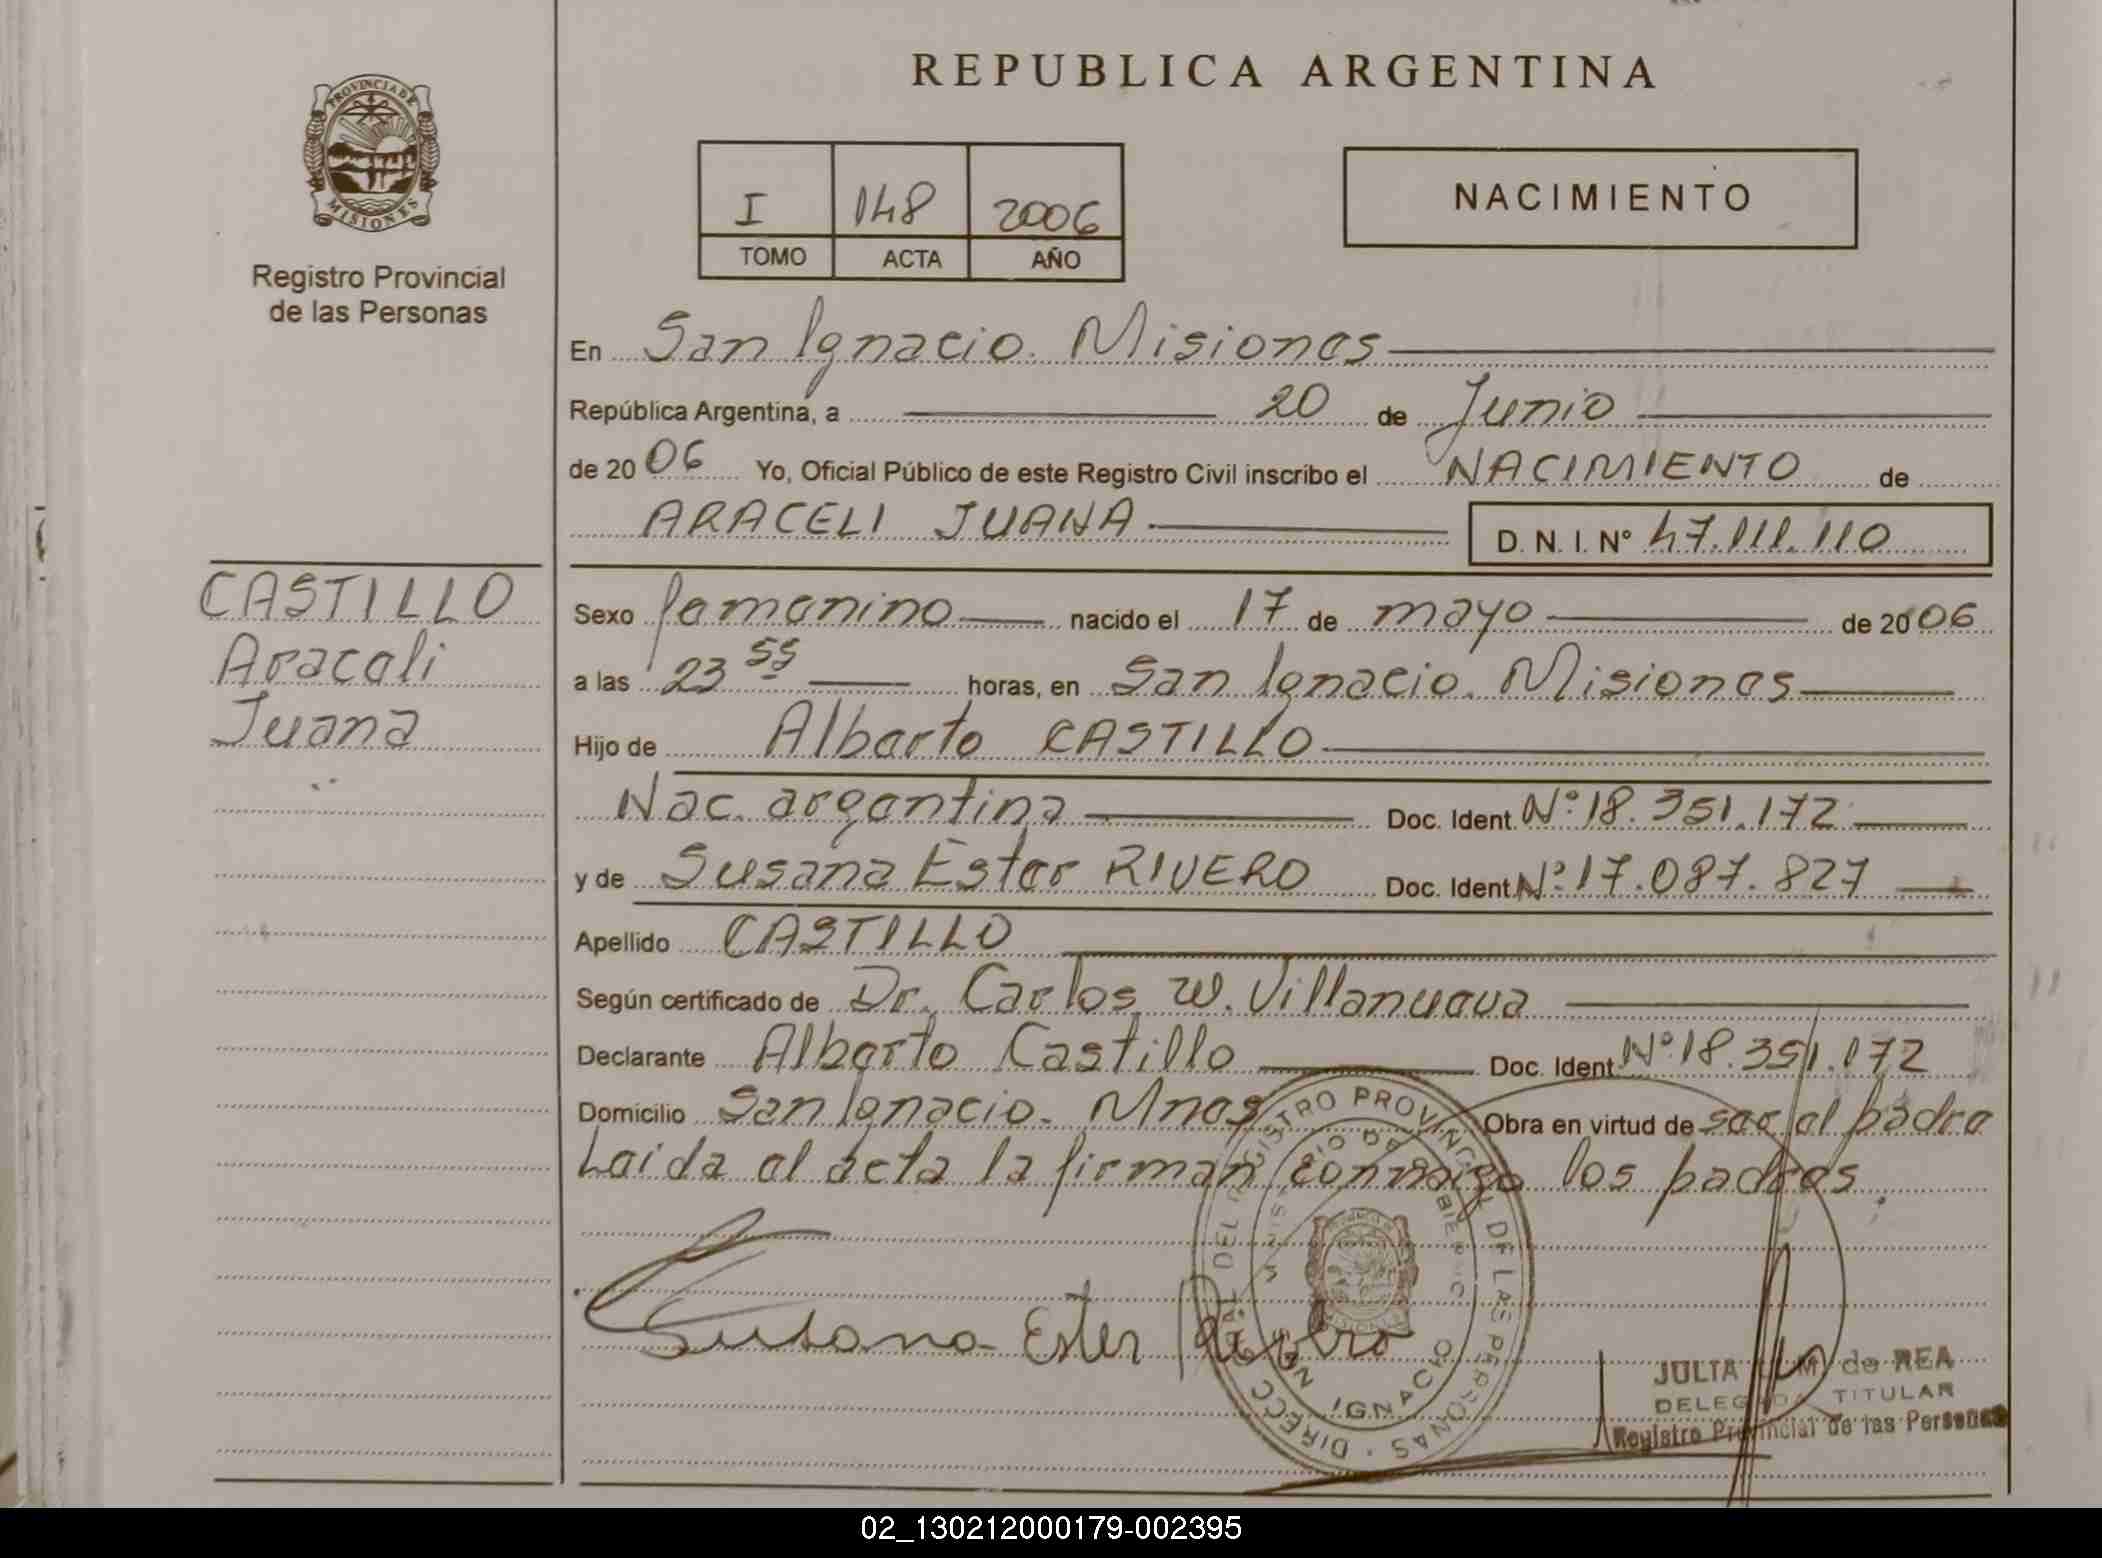 REPUBLICA ARGENTINA
PROVINCIA DE MISIONES
Registro Provincial
de las Personas
I 148 2006
TOMO ACTA AÑO
NACIMIENTO
En San Ignacio. Misiones
República Argentina, a 20 de Junio
de 2006 Yo, Oficial Público de este Registro Civil inscribo el NACIMIENTO de
ARACELI JUANA D. N. I. N° 47.111.110
CASTILLO
Araceli
Juana
Sexo femenino nacido el 17 de mayo de 2006
a las 23 55 horas, en San Ignacio. Misiones
Hijo de Alberto CASTILLO
Nac. argentina Doc. Ident. N°:18.351.172
y de Susana Ester RIVERO Doc. Ident. N°:17.087.827
Apellido CASTILLO
Según certificado de Dr. Carlos W. Villanueva
Declarante Alberto Castillo Doc. Ident. N°:18.351.172
Domicilio San Ignacio. Mnes Obra en virtud de ser el padre
Leida el acta la firman conmigo los padres.
Susana Ester Rivero
DIRECC. DEL REGISTRO PROVINCIAL DE LAS PERSONAS
IGNACIO
JULIA de REA
DELEGADA TITULAR
Registro Provincial de las Personas
02_130212000179-002395